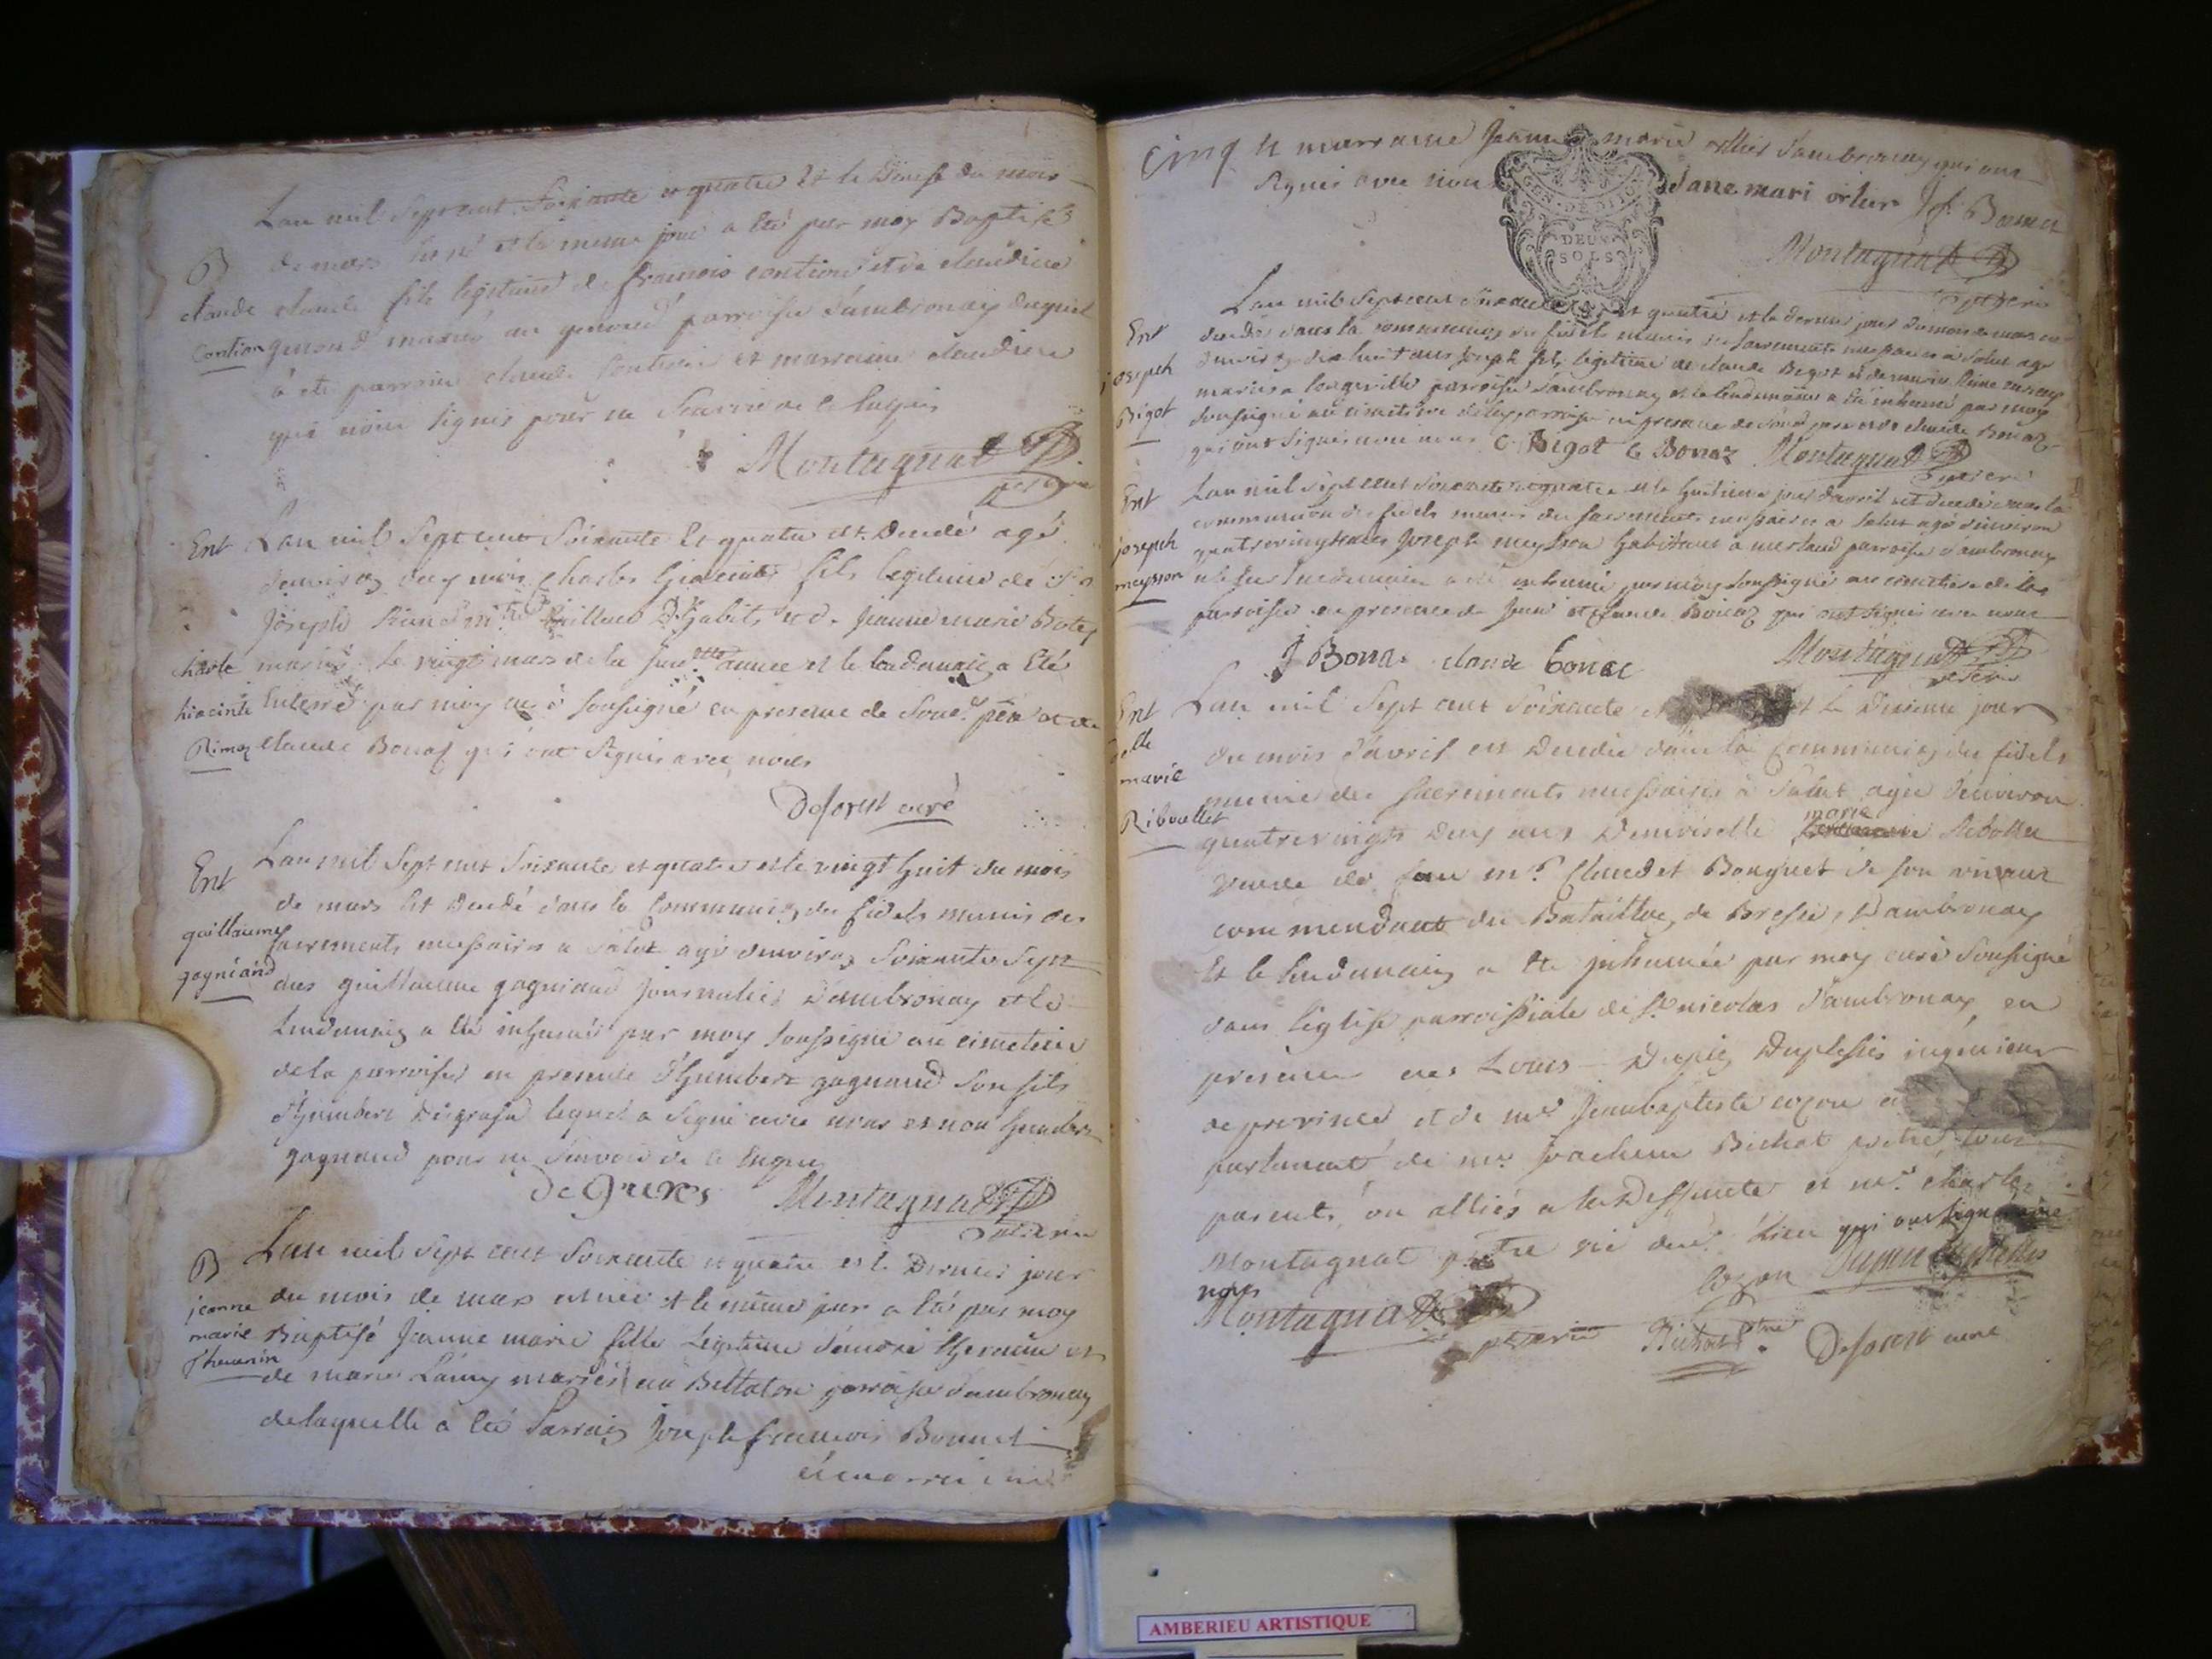 Lan mil Sept cent Soixante et quatre et le Douse du mois
B de mars est né et le meme jour a été par moy Baptisé
claude claude fils legitime de françois contion et de claudine
contion genoud mariés au genoud parroisse d'ambronay duquel
à eté parrain claude contion et marraine claudine
qui n'ont signés pour ne Scavoir de ce Enquis
Montagnat
Ent Lan mil Sept cent Soixante Et quatre est Decedé agé
denviron deux mois Charles hiacinte fils legitime de
Joseph habit et de Jeanne marie
charle mariés le vingt mars de la année et le lendemain a Eté
hiacinte Enterré par moy curé soussigné en presence de père et de
Rimoz claude Bonaz qui ont Signés avec nous
Deforest curé
Lan mil Sept cent Soixante et quatre et le vingt huit du mois
Ent de mars Est Decedé dans la Communion des fidels munis des
guillaume sacrements necessaires a salut agé denviron Soixante Sept
gagnéand ans guillaume gagniaud journalier D'ambronay et le
lendemain a été inhumé par moy soussigné au cimetiere
de la parroisse en presence d'humbert gagnaud son fils
d'humbert Degrusa lequel a signé avec nous et non humbert
gagnaud pour ne Scavoir de ce Enquis
De Grus Montagnat
B Lan mil Sept cent Soixante et quatre et le Dernier jour
jeanne du mois de mars est née et le même jour a Eté par moy
marie Baptisé Jeanne marie fille legitime d'émoré thevenin et
Thevenin de marie Lamy mariés au Bellaton parroisse d'ambronay
de laquelle a été Parrain Joseph françois Bonnet
et marraine
Cinq et marraine Jeanne marie ollier d'ambronay qui ont
signés avec nous Jane mari orlier Jf. Bonnet
GEN. DE DIJON
DEUX SOLS
Montagnat
Lan mil Sept cent Soixante et quatre et le dernier jour du mois de mars est
Ent decedé dans la communion des fidels munis des sacrements necessaires a salut agé
joseph denviron dix huit ans Joseph fils legitime de claude Bigot et de marie
mariés a longeville parroisse d'ambronay et le lendemain a été inhumé par moy
Bigot soussigné au cimetiere de la parroisse en presence de son père et de claude Bonaz
qui ont signés avec nous C. Bigot C Bonaz Montagnat
Ent Lan mil Sept cent Soixante et quatre et le huitieme jour d'avril est decedé dans la
communion des fidels munis des sacrements necessaires a salut agé denviron
joseph quatre vingts ans Joseph meysson habitant a merland parroisse d'ambronay
meysson et le lendemain a été inhumé par moy soussigné au cimetiere de la
parroisse en presence de Jean et Claude Bonaz qui ont signés avec nous
J Bonaz claude bonac Montagnat
Ent Lan mil Sept cent Soixante et le Dixieme jour
delle du mois d'avril est Decedée dans la Communion des fidels
marie munie des sacrements necessaires à salut agée denviron
Ribouellet quatrevingts Deux ans Demoiselle marie Ribollet
veuve de feu mr. Claude Bouquet de son vivant
commendant du Bataillon de Bresse, D'ambronay
Et le lendemain a été inhumée par moy curé soussigné
dans l'eglise parroissiale de St nicolas d'ambronay en
presence de Louis Dupin Duplessis ingenieur
de province et de mr Jeanbaptiste cozon
parlement de mr. joachim Bichat pretre tous
parents ou alliés a la Deffunte et mr. charle
Montagnat prtre vic dud. Lieu qui ont signé avec
nous
cozon Dupin Duplessis
Montagnat
Bichat Ptre. Deforest curé
AMBERIEU ARTISTIQUE